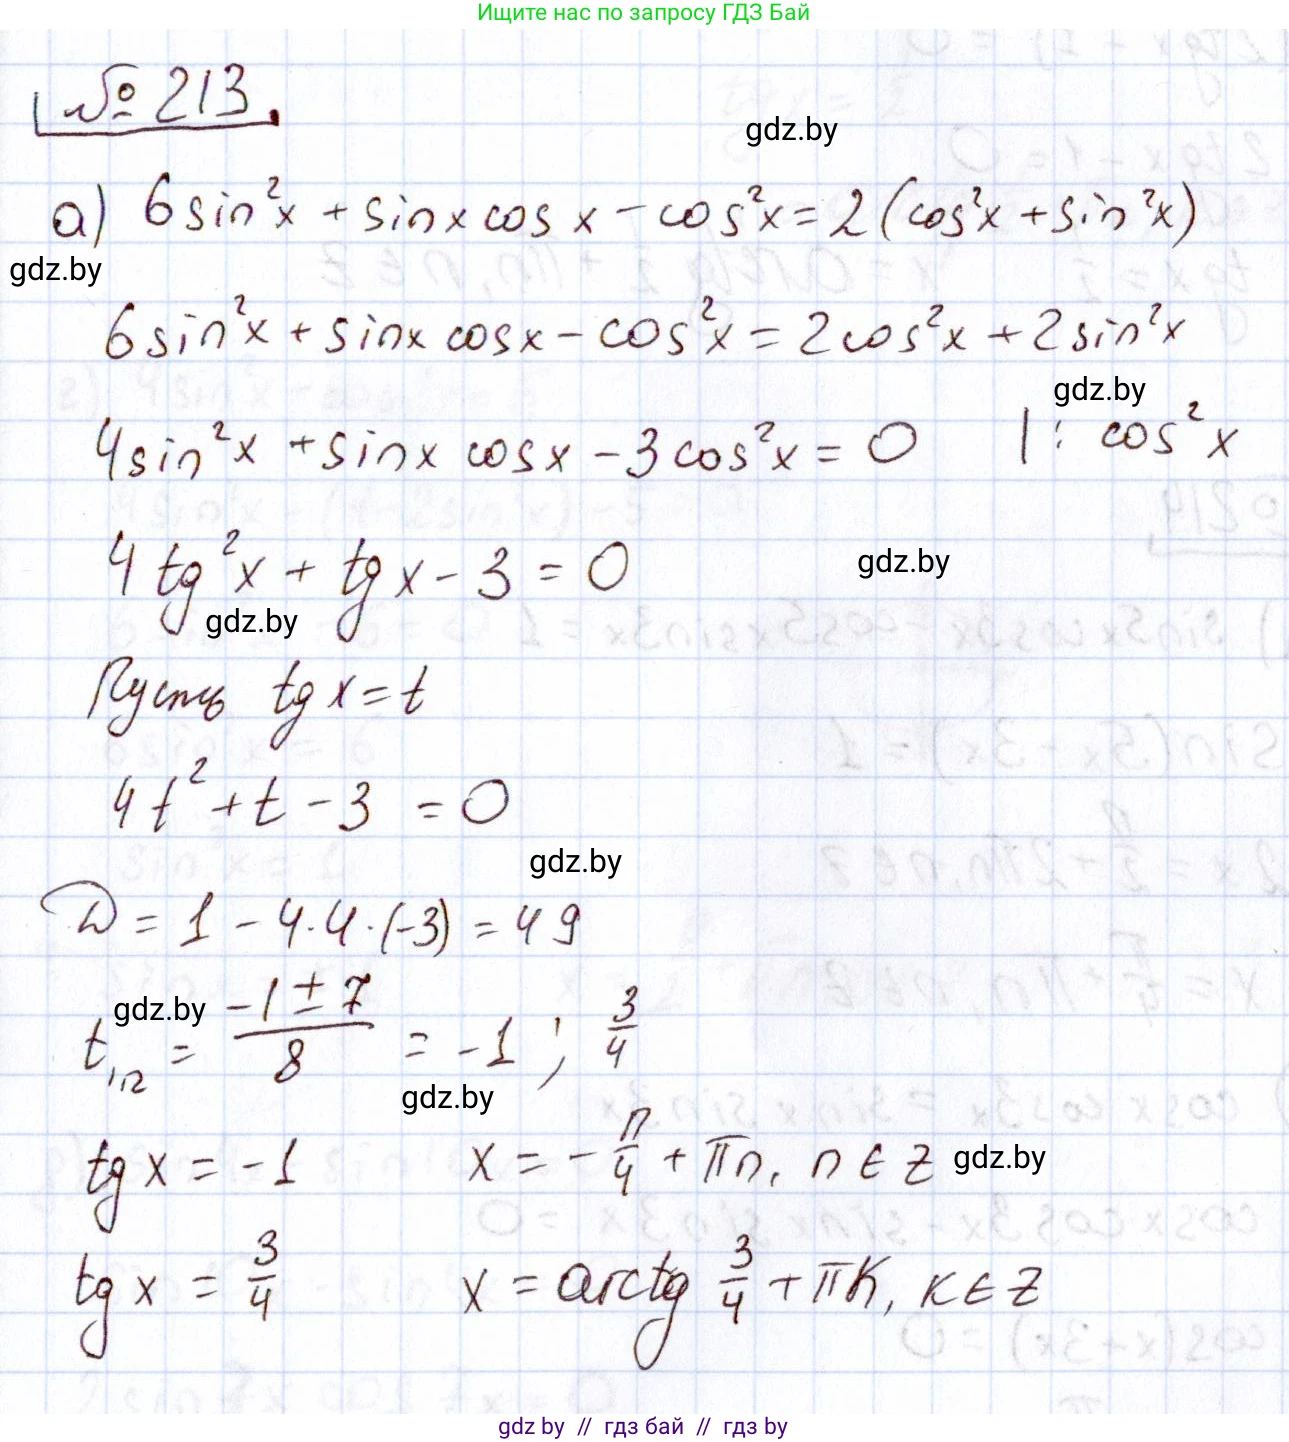 Ищите нас по запросу ГДЗ Бай
№ 213.
gdz.by
а) 6sin²x + sinx cos x - cos²x = 2(cos²x + sin²x)
gdz.by
6sin²x + sinx cosx - cos²x = 2cos²x + 2sin²x
gdz.by
4sin²x + sinx cosx - 3cos²x = 0 | : cos²x
4 tg²x + tgx - 3 = 0
gdz.by
gdz.by
Пусть tgx = t
4t² + t - 3 = 0
gdz.by
D = 1 - 4·4·(-3) = 49
gdz.by
t₁,₂ = (-1 ± 7)/8 = -1 ; 3/4
gdz.by
tgx = -1 x = -π/4 + πn, n ∈ Z
gdz.by
tgx = 3/4 x = arctg 3/4 + πk, k ∈ Z
gdz.by // гдз бай // гдз by